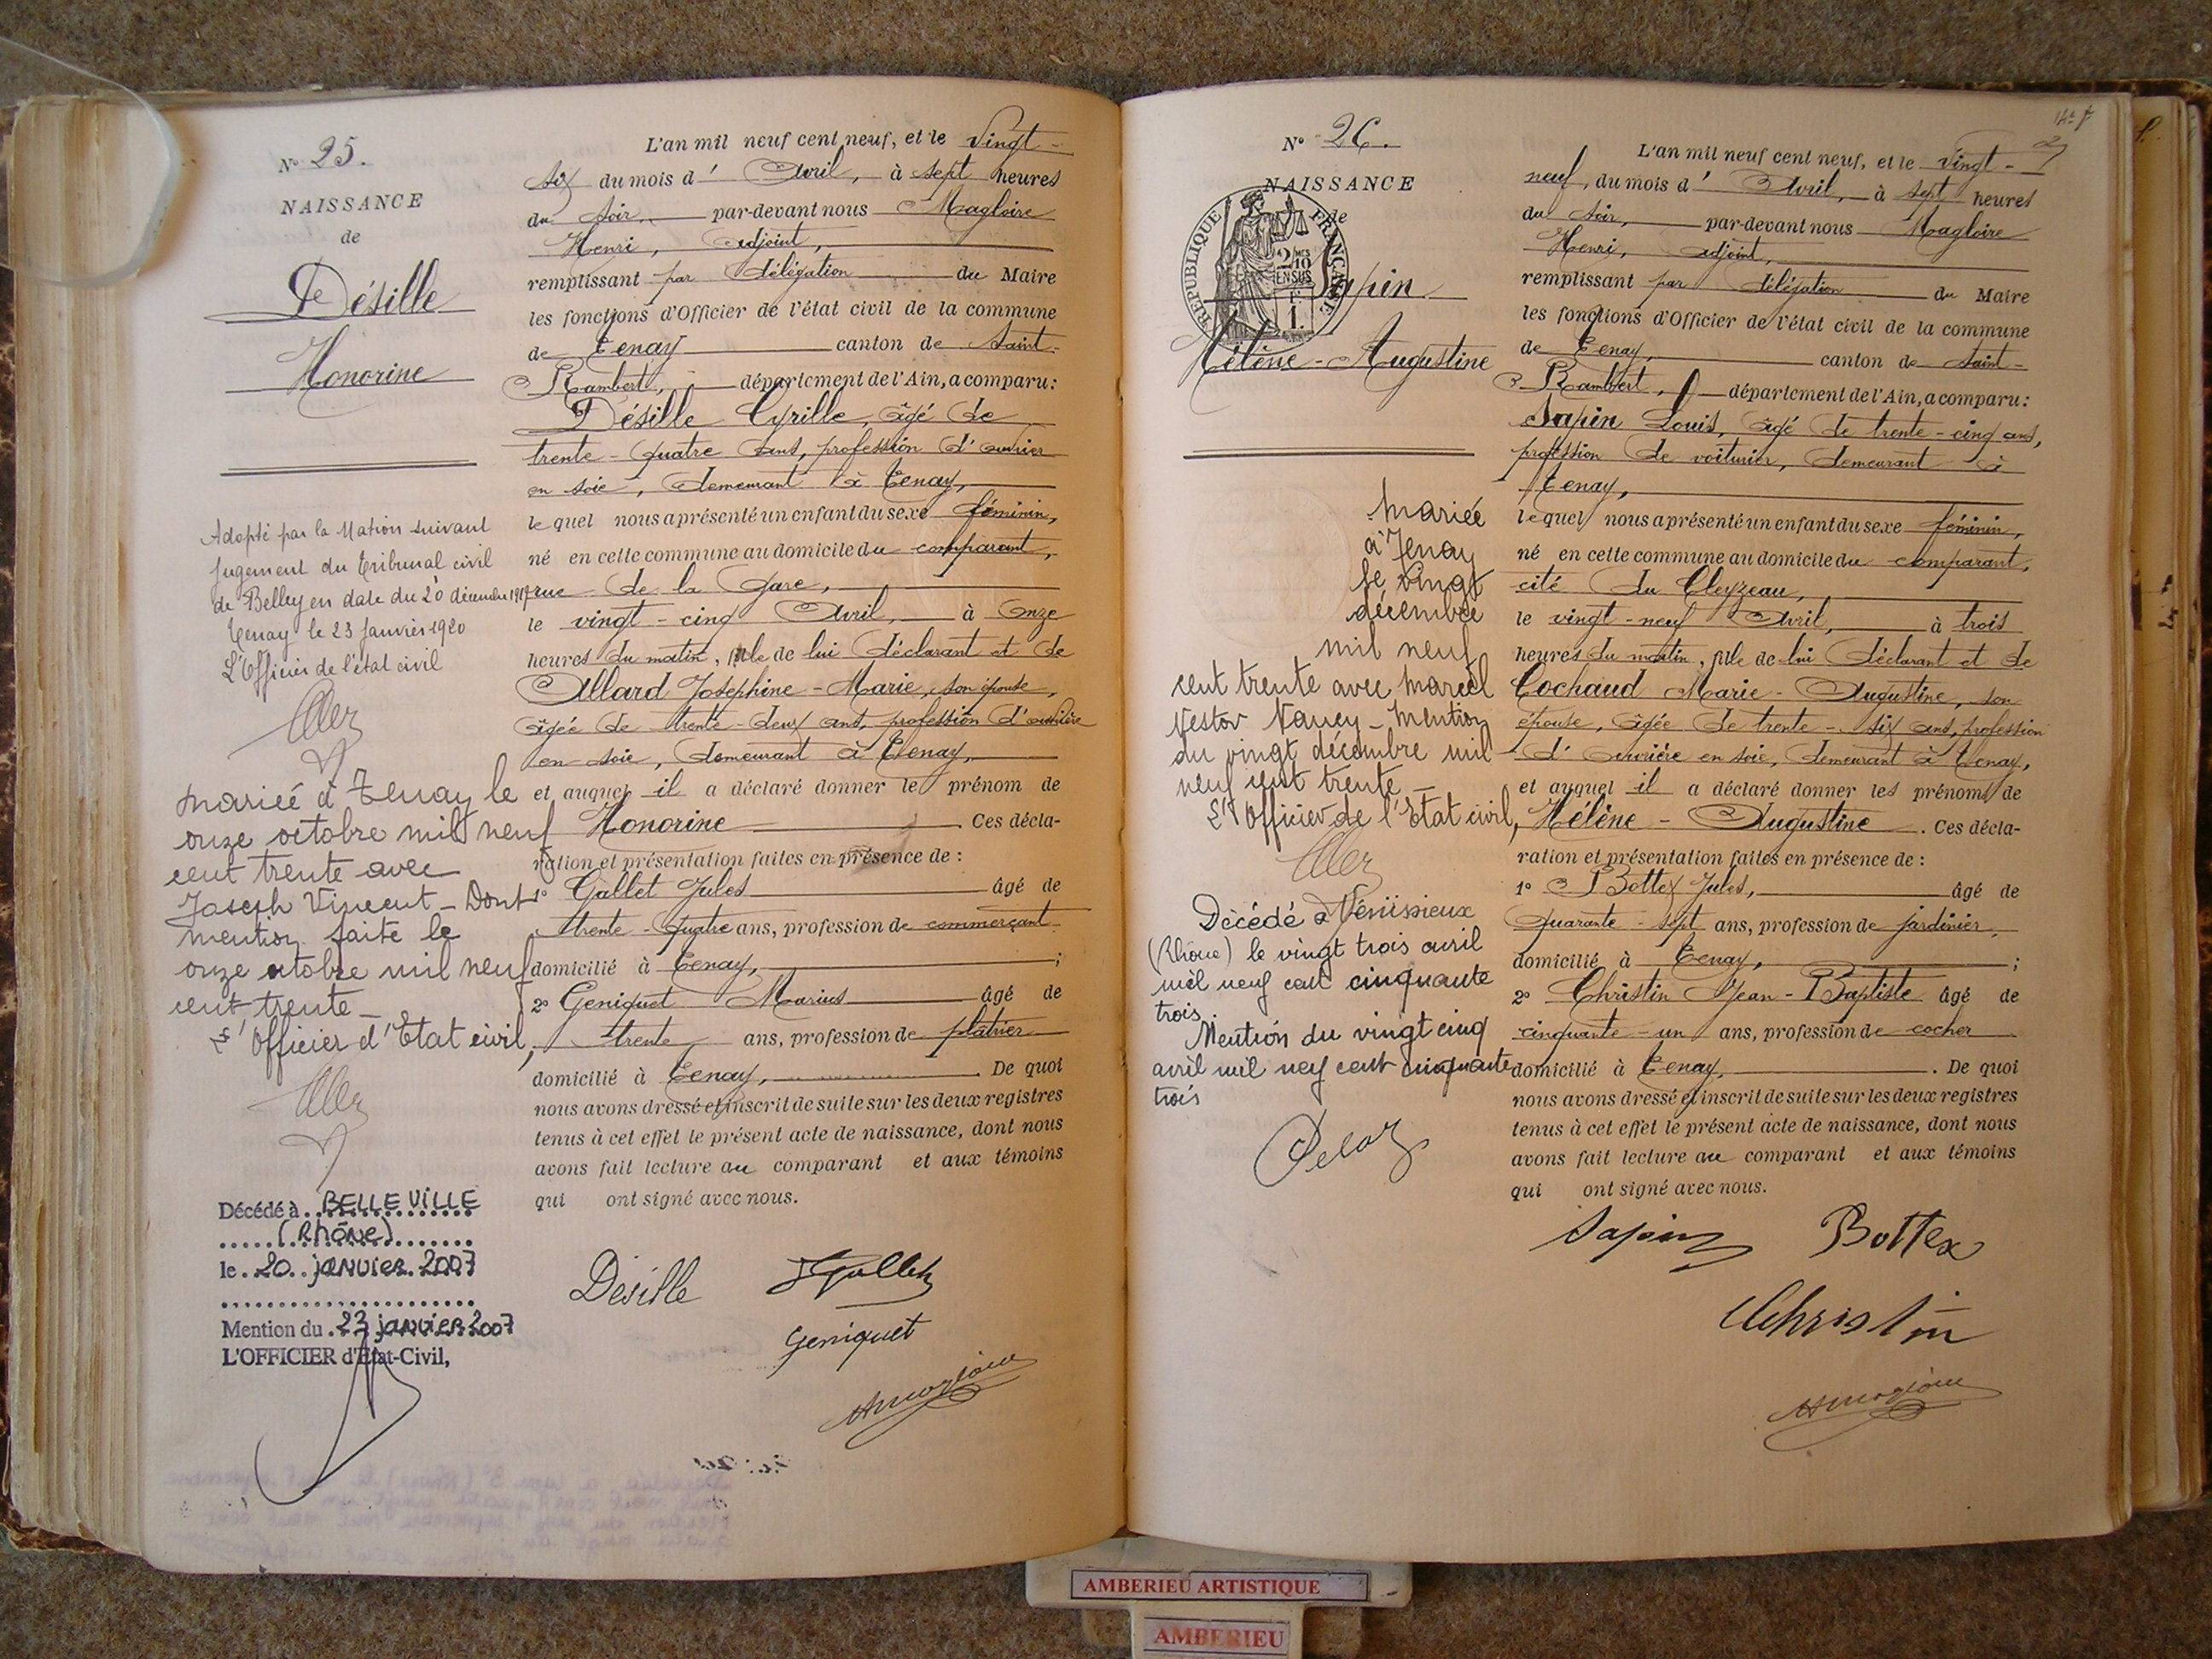 N° 25.
NAISSANCE
de
Désille
Honorine
Adopté par la Nation suivant
jugement du Tribunal civil
de Belley en date du 20 décembre 1919
Tenay le 23 Janvier 1920
L'Officier de l'état civil
Mariée à Tenay le
onze octobre mil neuf
cent trente avec
Joseph Vincent - Dont
mention faite le
onze octobre mil neuf
cent trente -
L'Officier d'Etat civil,
Décédé à BELLEVILLE
(Rhône)
le 20 janvier 2007
Mention du 23 janvier 2007
L'OFFICIER d'Etat-Civil,
L'an mil neuf cent neuf, et le Vingt-
six du mois d' Avril, à sept heures
du soir, par-devant nous Magloire
Henri, adjoint,
remplissant par délégation du Maire
les fonctions d'Officier de l'état civil de la commune
de Tenay canton de Saint-
Rambert, département de l'Ain, a comparu:
Désille Cyrille, âgé de
trente-quatre ans, profession d'ouvrier
en soie, demeurant à Tenay,
lequel nous a présenté un enfant du sexe féminin,
né en cette commune au domicile du comparant,
rue de la Gare,
le vingt-cinq Avril, à onze
heures du matin, fille de lui déclarant et de
Allard Joséphine-Marie, son épouse,
âgée de trente-deux ans, profession d'ouvrière
en soie, demeurant à Tenay,
et auquel il a déclaré donner le prénom de
Honorine. Ces décla-
ration et présentation faites en présence de :
1° Gallet Jules âgé de
trente-quatre ans, profession de commerçant
domicilié à Tenay, ;
2° Geniquet Marius âgé de
trente ans, profession de plâtrier
domicilié à Tenay, . De quoi
nous avons dressé et inscrit de suite sur les deux registres
tenus à cet effet le présent acte de naissance, dont nous
avons fait lecture au comparant et aux témoins
qui ont signé avec nous.
Désille JGallet
Geniquet
HMagloire
N° 26.
NAISSANCE
de
REPUBLIQUE FRANÇAISE
2/10 EN SUS
1 F.
Sapin
Hélène-Augustine
Mariée
à Tenay
le vingt
décembre
mil neuf
cent trente avec Marcel
Nestor Nancy - Mention
du vingt décembre mil
neuf cent trente -
L'Officier de l'Etat civil,
Décédé à Vénissieux
(Rhône) le vingt trois avril
mil neuf cent cinquante
trois.
Mention du vingt cinq
avril mil neuf cent cinquante
trois
L'an mil neuf cent neuf, et le vingt-
neuf, du mois d' Avril, à sept heures
du soir, par-devant nous Magloire
Henri, adjoint,
remplissant par délégation du Maire
les fonctions d'Officier de l'état civil de la commune
de Tenay, canton de Saint-
Rambert, département de l'Ain, a comparu:
Sapin Louis, âgé de trente-cinq ans,
profession de voiturier, demeurant à
Tenay,
lequel nous a présenté un enfant du sexe féminin,
né en cette commune au domicile du comparant,
cité du Cleyzeau,
le vingt-neuf Avril, à trois
heures du matin, fille de lui déclarant et de
Cochaud Marie-Augustine, son
épouse, âgée de trente-six ans, profession
d'ouvrière en soie, demeurant à Tenay,
et auquel il a déclaré donner les prénoms de
Hélène-Augustine. Ces décla-
ration et présentation faites en présence de :
1° Bottex Jules, âgé de
quarante-sept ans, profession de jardinier
domicilié à Tenay, ;
2° Christin Jean-Baptiste âgé de
cinquante-un ans, profession de cocher
domicilié à Tenay, . De quoi
nous avons dressé et inscrit de suite sur les deux registres
tenus à cet effet le présent acte de naissance, dont nous
avons fait lecture au comparant et aux témoins
qui ont signé avec nous.
Sapin Bottex
Christin
HMagloire
AMBERIEU ARTISTIQUE
AMBERIEU